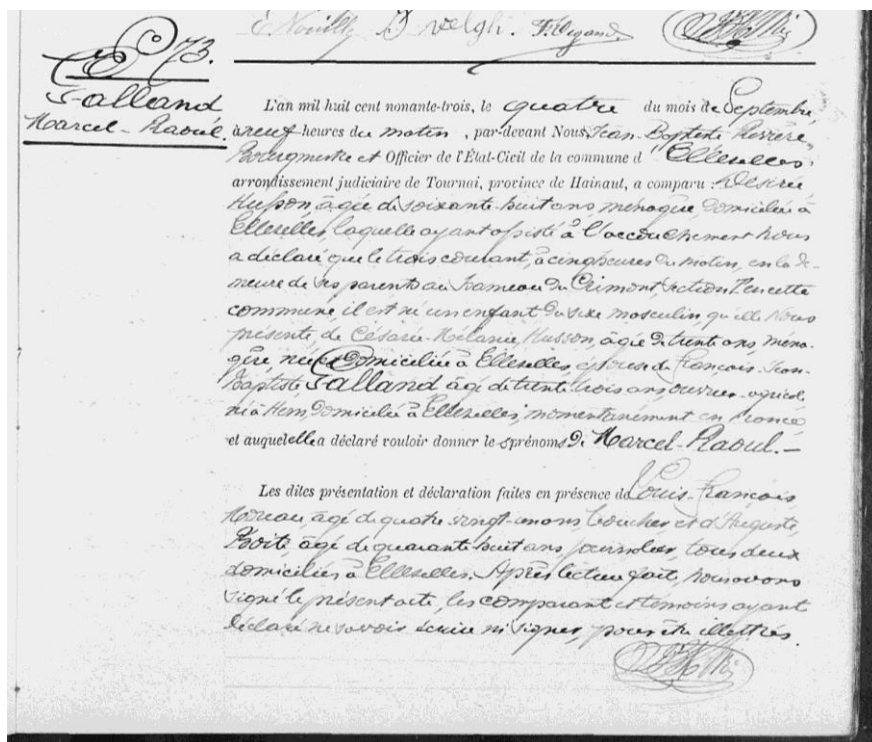 73.
Galland
Marcel-Raoul.
L'an mil huit cent nonante-trois, le quatre du mois de Septembre,
à neuf heures du matin, par-devant Nous Jean-Baptiste
Bourgmestre et Officier de l'État-Civil de la commune d'Ellezelles,
arrondissement judiciaire de Tournai, province de Hainaut, a comparu : Désirée
Husson, âgée de soixante-huit ans, ménagère, domiciliée à
Ellezelles, laquelle ayant assisté à l'accouchement Nous
a déclaré que le trois courant, à cinq heures du matin, en la de-
meure de ses parents au hameau du Crimont, section
commune, il est né un enfant du sexe masculin, qu'elle Nous
présente, de Césarie-Mélanie Husson, âgée de trente ans, ména-
gère, née et domiciliée à Ellezelles, épouse de François-Jean-
Baptiste Galland âgé de trente-trois ans, ouvrier agricole
né à Hem, domicilié à Ellezelles, momentanément en France
et auquel elle a déclaré vouloir donner les prénoms de Marcel-Raoul.-
Les dites présentation et déclaration faites en présence de Louis-François
Moreau, âgé de quatre-vingt-un ans, boucher, et d'Auguste
âgé de quarante-huit ans, journalier, tous deux
domiciliés à Ellezelles. Après lecture faite, Nous avons
signé le présent acte, les comparant et témoins ayant
déclaré ne savoir écrire ni signer, pour être illettrés.